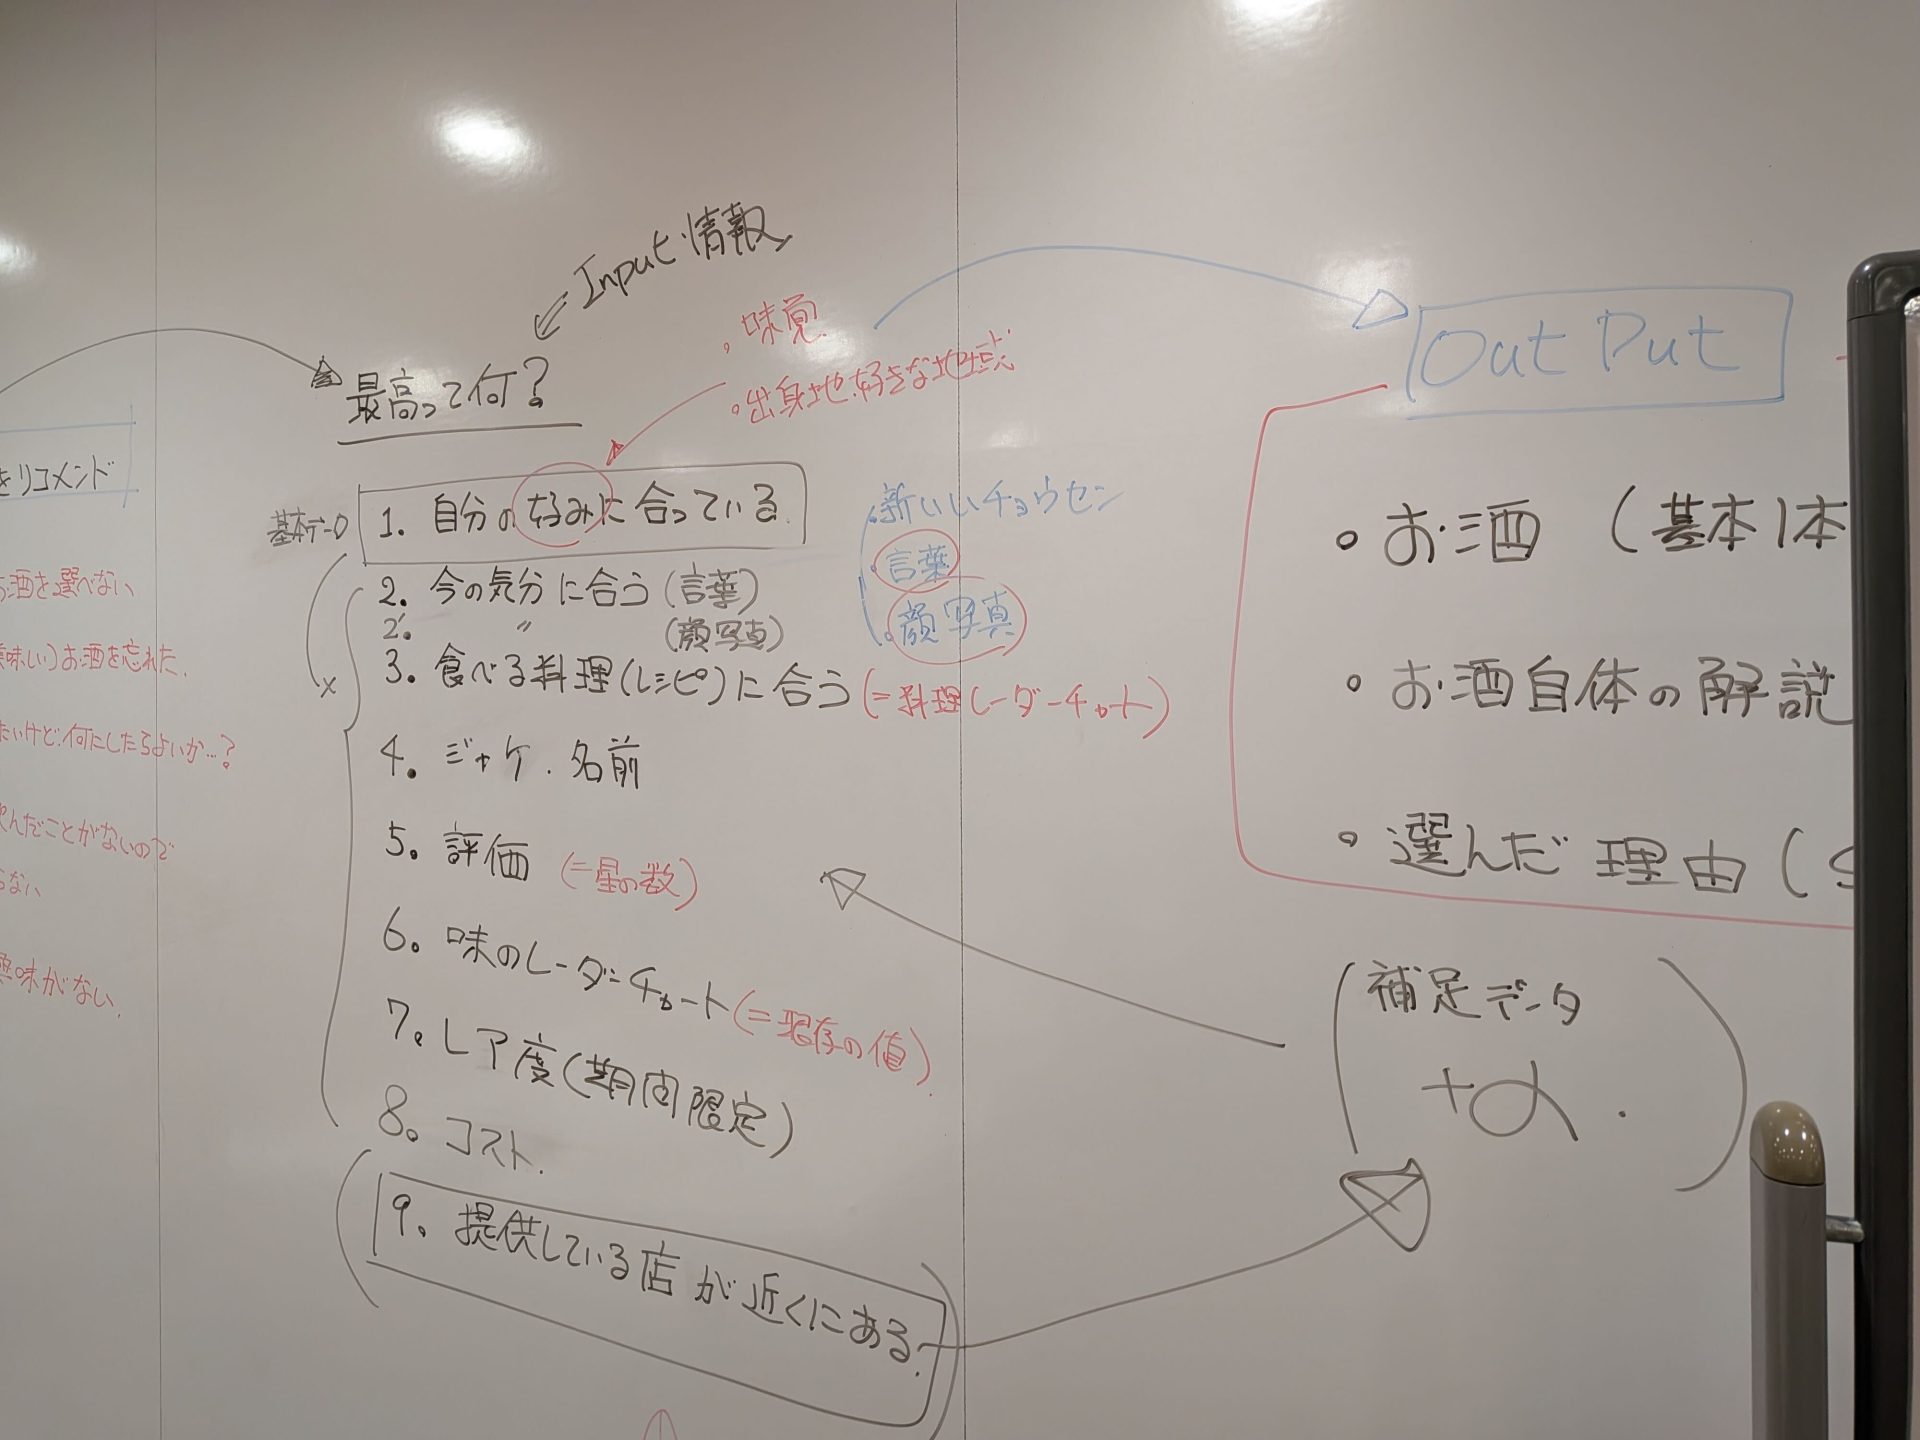 をリコメンド
お酒を選べない
味しい)お酒を忘れた.
たいけど.何にしたらよいか…?
んだことがないので
らない
興味がない.
Input情報
最高って何?
・味覚.
・出身地.好きな地域
基本データ
1. 自分の好みに合っている.
2. 今の気分に合う(言葉)
2'. 〃 (顔写真)
3. 食べる料理(レシピ)に合う(=料理レーダーチャート)
4. ジャケ.名前
5. 評価 (=星の数)
6. 味のレーダーチャート(=現存の値).
7. レア度(期間限定)
8. コスト.
9. 提供している店が近くにある.
・新しいチョウセン
・言葉
・顔写真
OutPut
・お酒 (基本1本
・お酒自体の解説
・選んだ理由(
(補足データ
+α.)